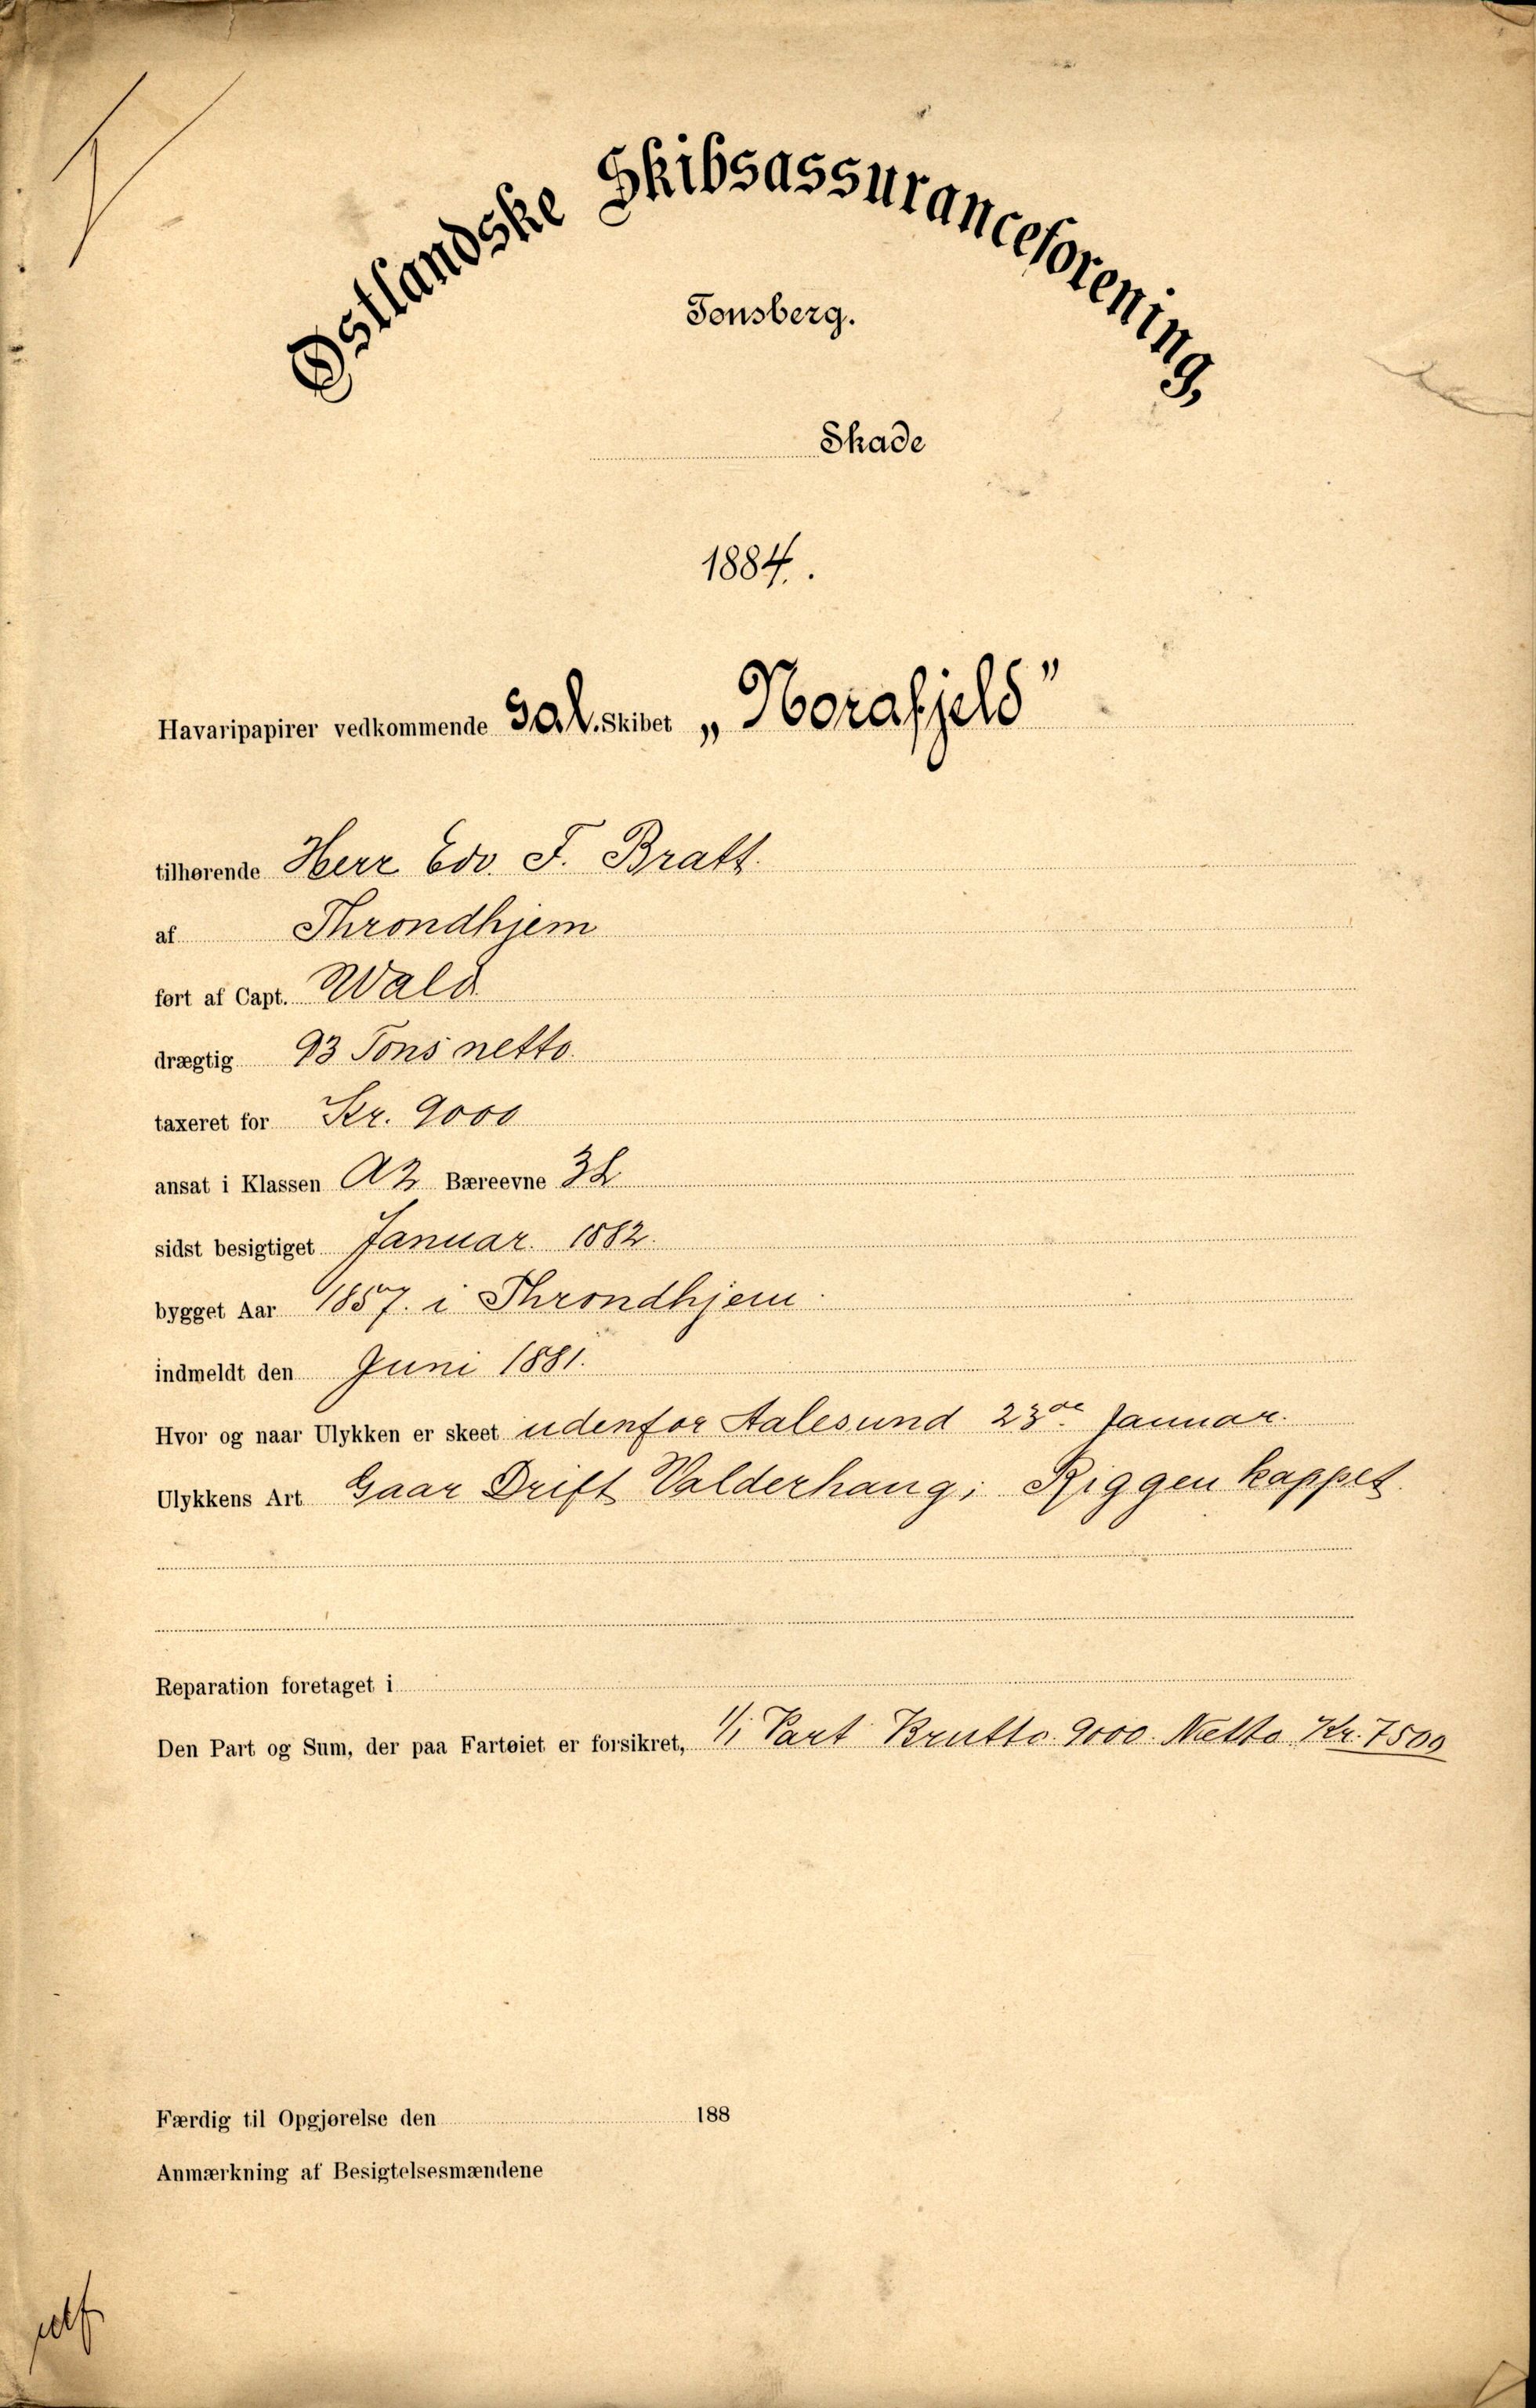 Østlandske Skibsassuranceforening,
Tønsberg.
Skade
1884.
Havaripapirer vedkommende Gal. Skibet „Norafjeld"
tilhørende Herr Edv. F. Bratt.
af Throndhjem
ført af Capt. Wald
drægtig 93 Tons netto
taxeret for Kr. 9000
ansat i Klassen A2 Bæreevne
sidst besigtiget Januar 1882.
bygget Aar 1857. i Throndhjem.
indmeldt den Juni 1881.
Hvor og naar Ulykken er skeet udenfor Aalesund 23de Januar.
Ulykkens Art Gaar Drift Valderhaug; Riggen kappet.
Reparation foretaget i
Den Part og Sum, der paa Fartøiet er forsikret, 1/1 Part Brutto 9000. Netto Kr. 7500
Færdig til Opgjørelse den 188
Anmærkning af Besigtelsesmændene